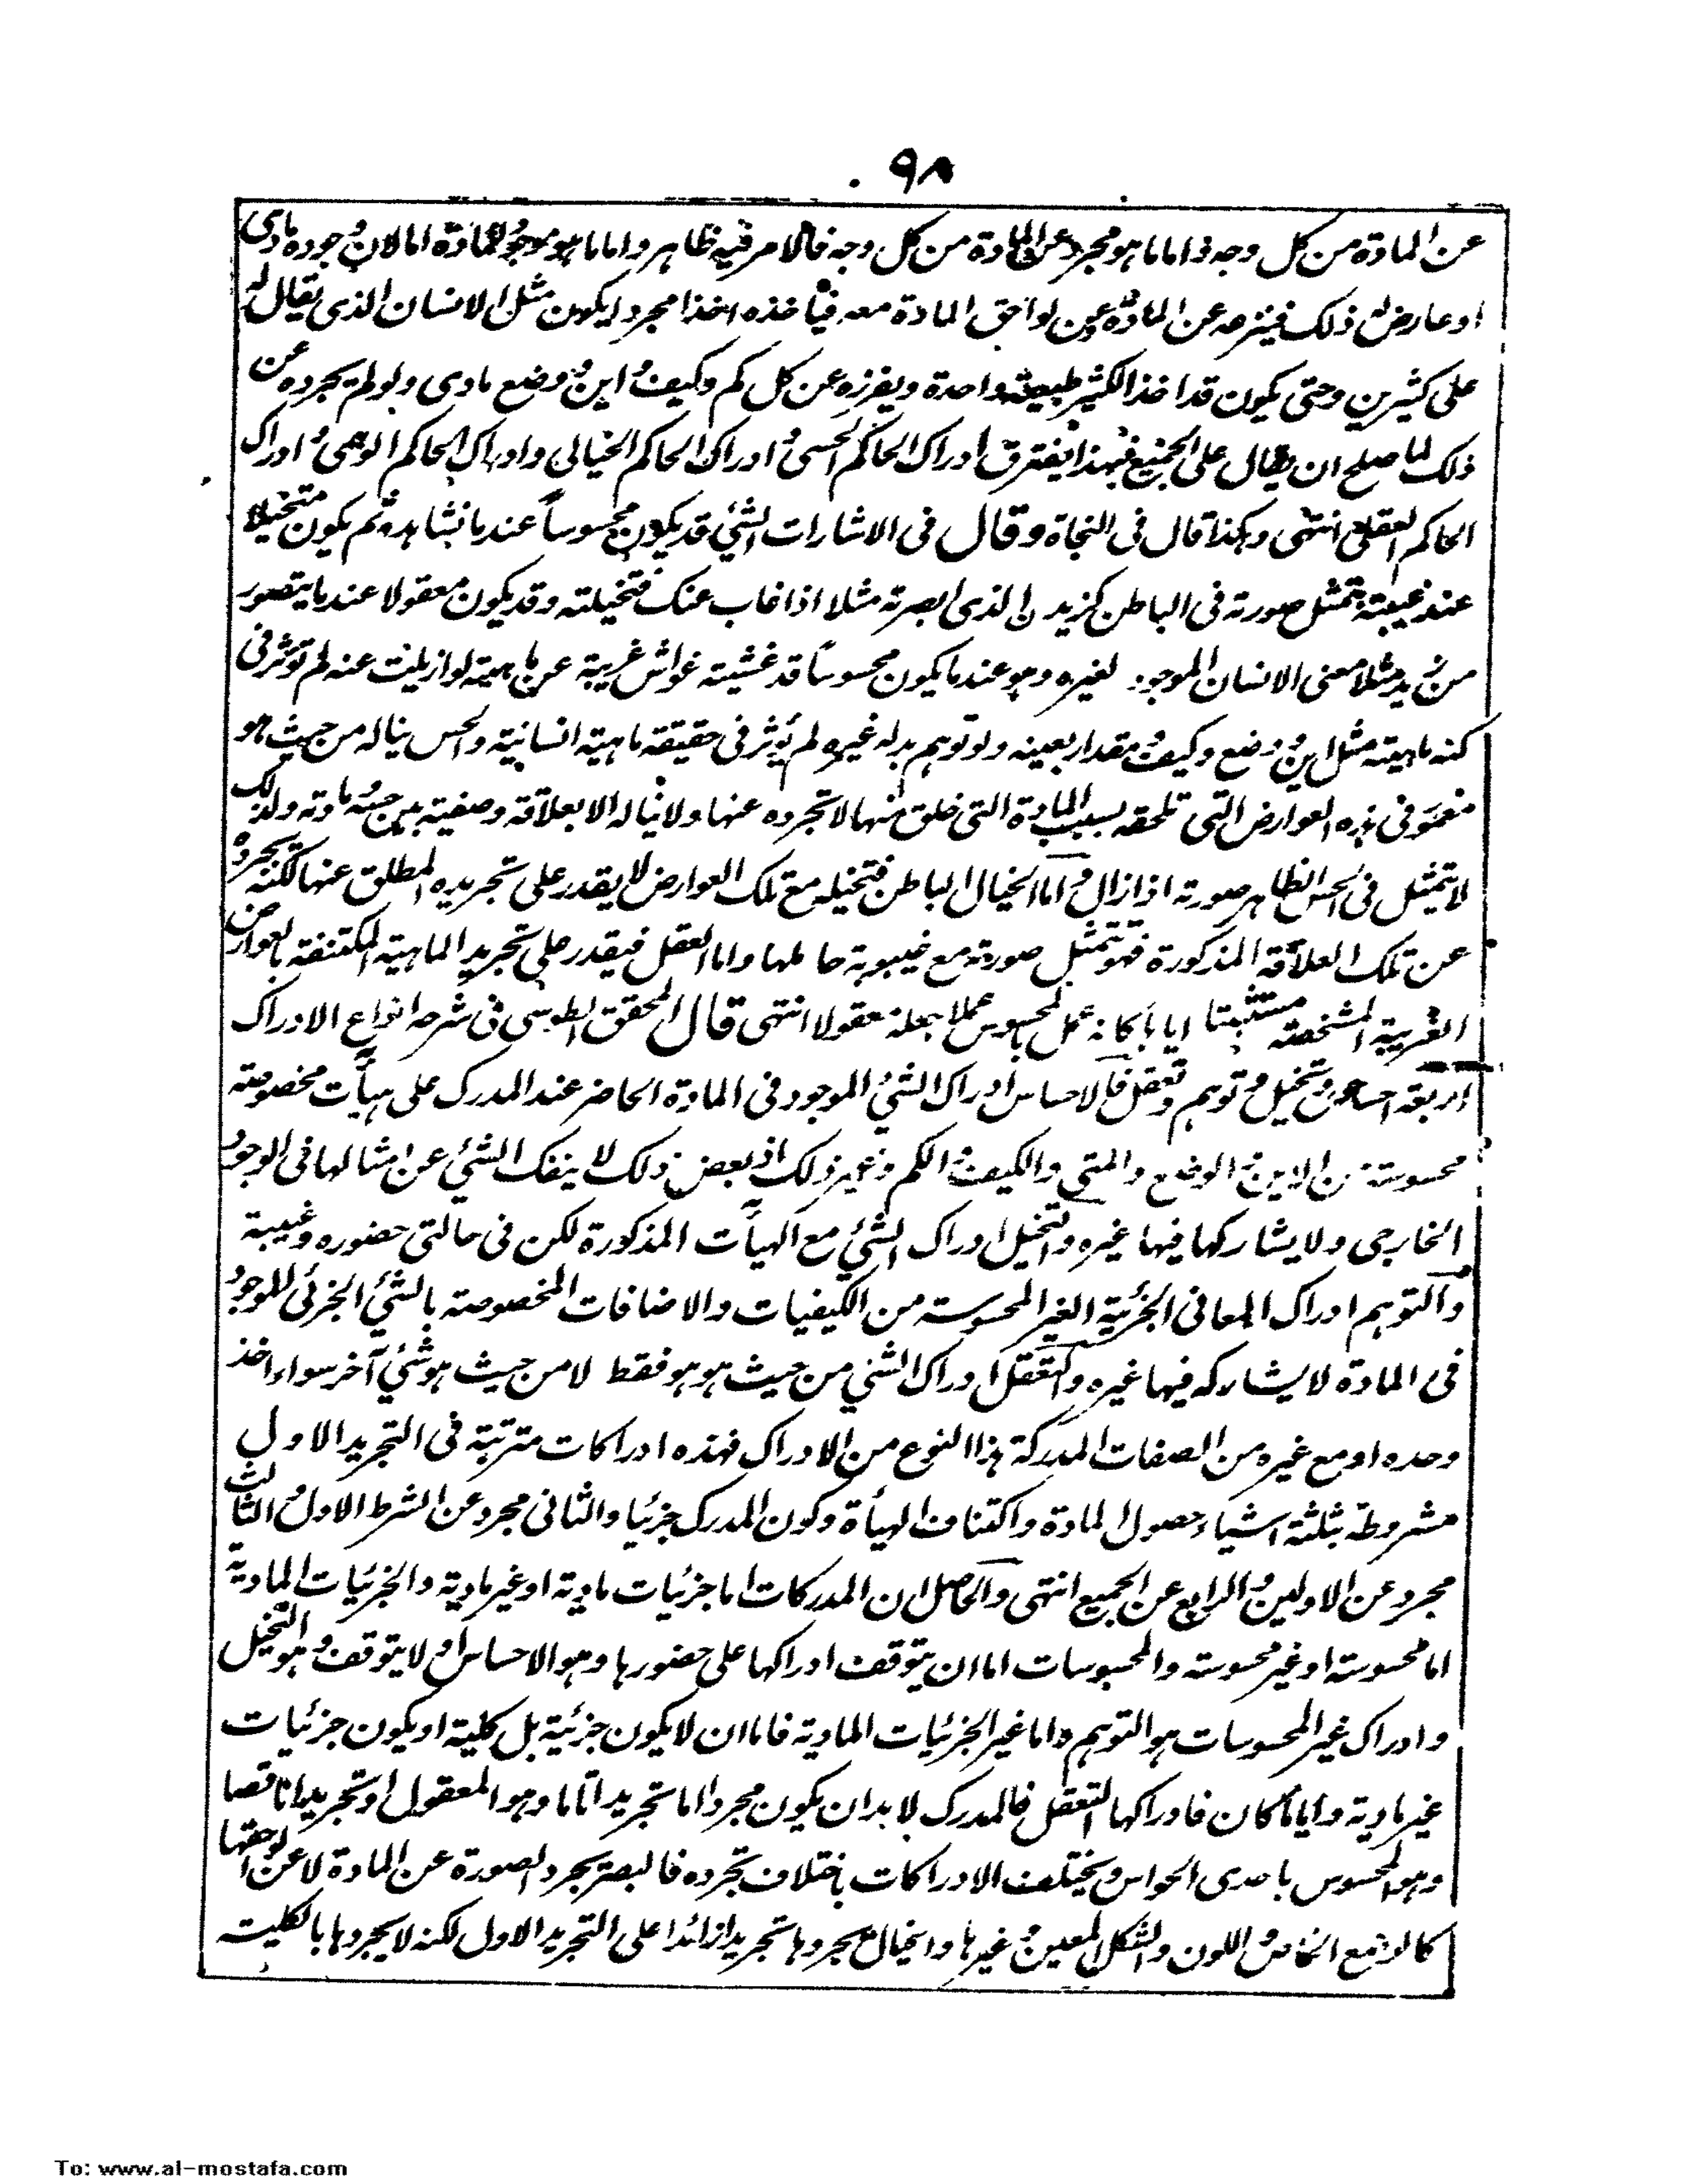 ٩٨
عن المادة من كل وجه واما ما هو مجرد عن المادة من كل وجه فالامر فيه ظاهر واما ما هو موجود للمادة اما لان وجوده مادى
او عارض له ذلك فينزعه عن المادة وعن لواحق المادة معه فيأخذه اخذا مجردا يكون مثل الانسان الذى يقال له
على كثيرين وحتى يكون قد اخذ الكثير طبيعة واحدة ويفرزه عن كل كم وكيف واين ووضع مادى ولو لم يجرده عن
ذلك لما صلح ان يقال على الجميع فبهذا يفترق ادراك الحاكم الحسى وادراك الحاكم الخيالى وادراك الحاكم الوهمى وادراك
الحاكم العقلى انتهى وهكذا قال فى النجاة وقال فى الاشارات الشئ قد يكون محسوساً عند ما نشاهده ثم يكون متخيلا
عند غيبته بتمثل صورته فى الباطن كزيد ن الذى ابصرته مثلا اذا غاب عنك فتخيلته وقد يكون معقولا عند ما يتصور
من زيد مثلا معنى الانسان الموجود لغيره وهو عند ما يكون محسوساً قد غشيته غواش غريبة عن ماهيته لو ازيلت عنه لم تؤثر فى
كنه ماهيته مثل اين ووضع وكيف ومقدار بعينه ولو توهم بدله غيره لم يؤثر فى حقيقة ماهية انسانيته والحس يناله من حيث هو
مغمور فى هذه العوارض التى تلحقه بسبب المادة التى خلق منها لا تجرده عنها ولا يناله الا بعلاقة وضعية بين حسه ومادته ولذلك
لا يتمثل فى الحس الظاهر صورته اذا زال واما الخيال الباطن فتخيله مع تلك العوارض لا يقدر على تجريده المطلق عنها لكنه يجرده
عن تلك العلاقة المذكورة فهو تتمثل صورته مع غيبوبة حاملها واما العقل فيقدر على تجريد الماهية المكتنفة بالعوارض
الغريبة المشخصة مستثبتا اياها كانه عمل بالمحسوس عملا جعله معقولا انتهى قال المحقق الطوسى فى شرحه انواع الادراك
اربعة احساس وتخيل وتوهم وتعقل فالاحساس ادراك الشئ الموجود فى المادة الحاضر عند المدرك على هيآت مخصوصة
محسوسة من الاين والوضع والمتى والكيف والكم وغير ذلك اذ بعض ذلك لا ينفك الشئ عن امثالها فى الوجود
الخارجى ولا يشاركها فيها غيره والتخيل ادراك الشئ مع الهيآت المذكورة لكن فى حالتى حضوره وغيبة
والتوهم ادراك المعانى الجزئية الغير المحسوسة من الكيفيات والاضافات المخصوصة بالشئ الجزئى الموجود
فى المادة لا يشاركه فيها غيره والتعقل ادراك الشئ من حيث هو هو فقط لا من حيث هو شئ آخر سواء اخذ
وحده او مع غيره من الصفات المدركة هذا النوع من الادراك فهذه ادراكات مترتبة فى التجريد الاول
مشروطة بثلثة اشياء حصول المادة واكتناف الهيأة وكون المدرك جزئيا والثانى مجرد عن الشرط الاول والثالث
مجرد عن الاولين والرابع عن الجميع انتهى والحاصل ان المدركات اما جزئيات مادية او غير مادية والجزئيات المادية
اما محسوسة او غير محسوسة والمحسوسات اما ان يتوقف ادراكها على حضورها وهو الاحساس او لا يتوقف وهو التخيل
وادراك غير المحسوسات هو التوهم واما غير الجزئيات المادية فاما ان لا يكون جزئية بل كلية او يكون جزئيات
غير مادية وايا ما كان فادراكها التعقل فالمدرك لا بد ان يكون مجردا اما تجريدا تاما وهو المعقول او تجريدا ناقصا
وهو المحسوس باحدى الحواس ويختلف الادراكات باختلاف تجرده فالبصر يجرد الصورة عن المادة لا عن لواحقها
كالوضع الخاص واللون والشكل المعين وغيرها والخيال يجردها تجريدا زائدا على التجريد الاول لكنه لا يجردها بالكلية
To: www.al-mostafa.com